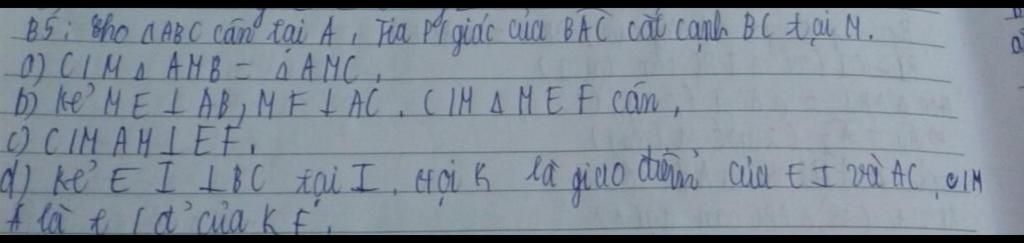 B5: Cho ΔABC cân tại A, Tia p/giác của BAC cắt cạnh BC tại M.
a) C/M Δ AMB = Δ AMC,
b) Kẻ ME ⊥ AB, MF ⊥ AC. C/M Δ MEF cân,
c) C/M AM ⊥ EF,
d) Kẻ EI ⊥ BC tại I. Gọi K là giao điểm của EI và AC, C/M
A là t/đ của KF,